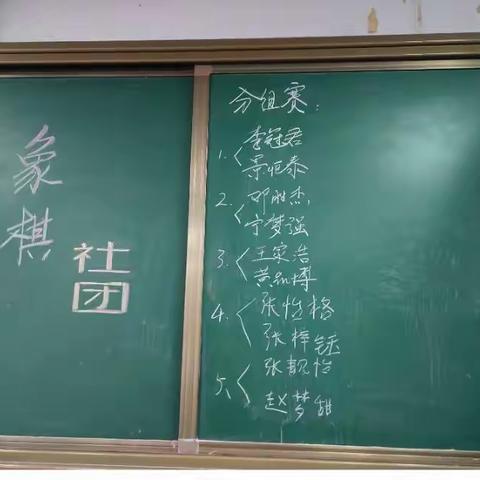 象棋
社
团
分组赛：
1. 李冠君
景恒泰
2. 邓胜杰
宁梦强
3. 王宗浩
黄弘博
4. 张怡格
张梓钰
5、张靓怡
赵梦甜